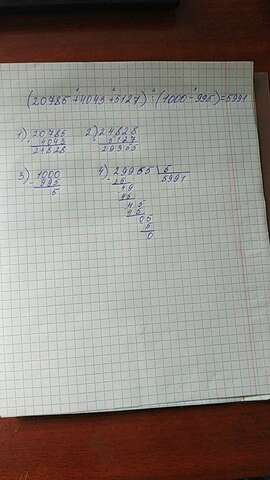 (20785+4043+5127):(1000-995)=5991
1) 20785 2) 24828
+ 4043 + 5127
24828 29955
3) 1000 4) 29955 | 5
- 995 - 25 5991
5 49
45
45
45
05
5
0